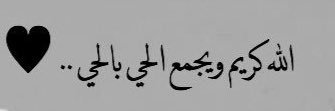 الله كريم ويجمع الحي بالحي .. ♥